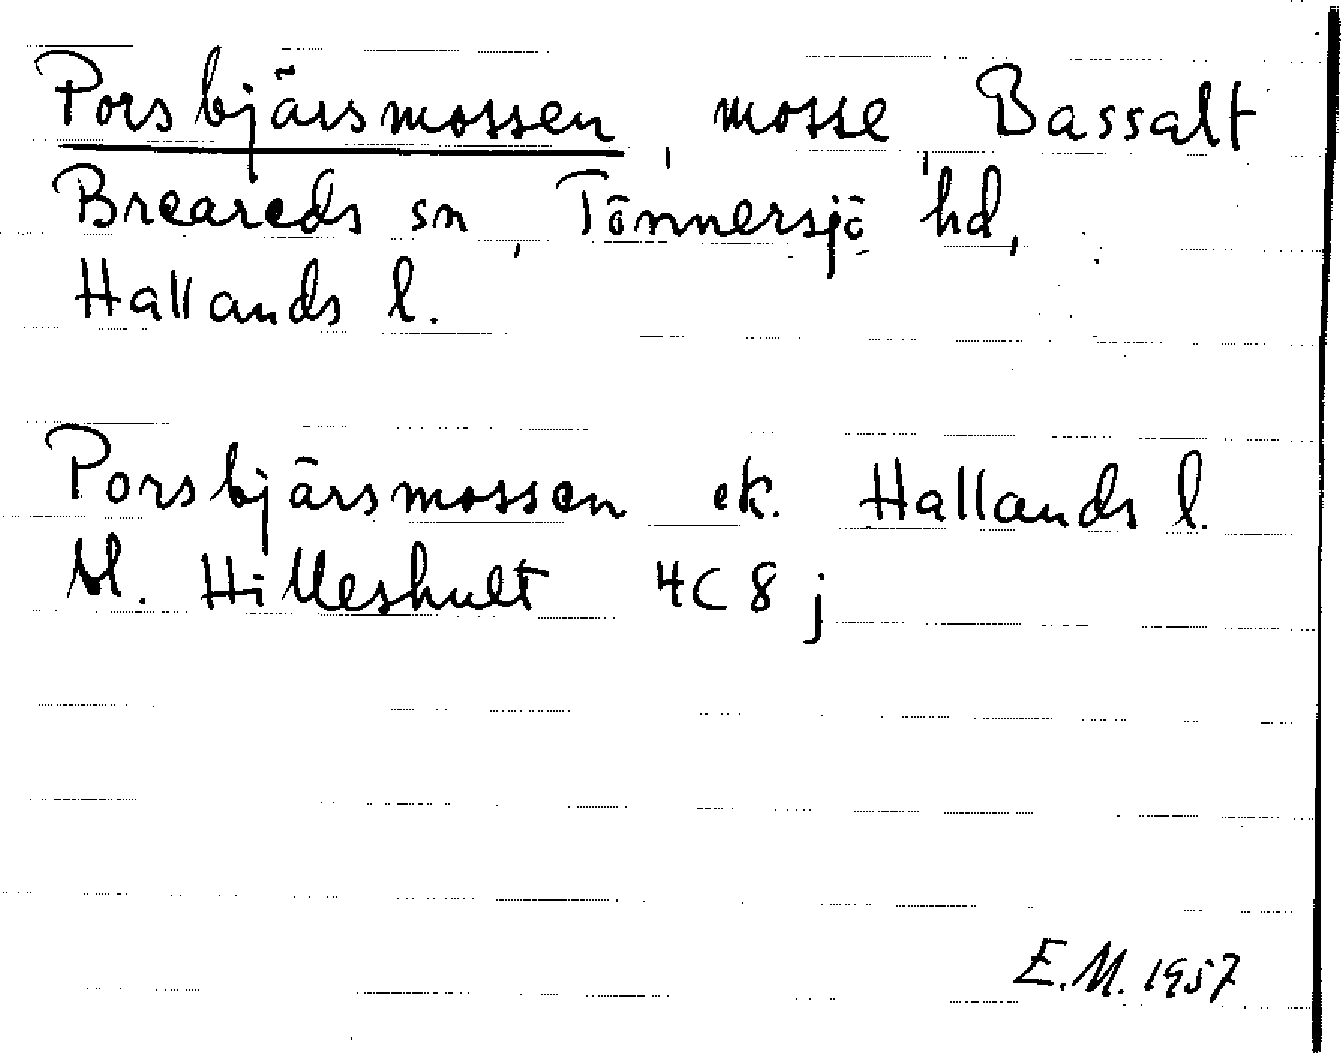 Porsbjärsmossen, mosse, Bassalt
Breareds sn, Tönnersjö hd,
Hallands l.
Porsbjärsmossen ek. Hallands l.
bl. Hilleshult 4C 8 j
E.M. 1957